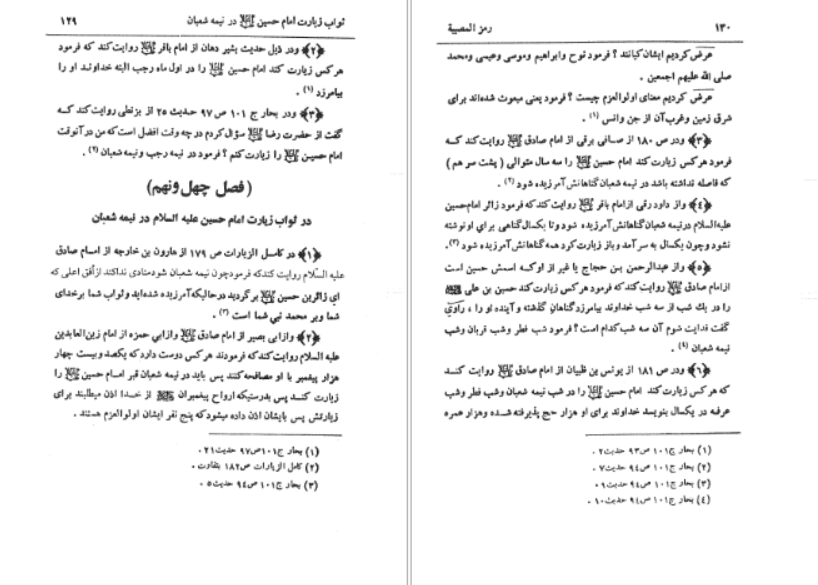 ثواب زیارت امام حسین علیه السلام در نیمه شعبان ۱۲۹
﴿۲﴾ ودر ذیل حدیث بشیر دهان از امام باقر روایت کند که فرمود
هر کس زیارت کند امام حسین را در اول ماه رجب البته خداوند او را
بیامرزد (۱) .
﴿۳﴾ ودر بحار ج ۱۰۱ ص ۹۷ حدیث ۲۵ از بزنطی روایت کند کــه
گفت از حضرت رضا سؤال کردم در چه وقت افضل است که من در آنوقت
امام حسیـن را زیارت کنم ؟ فرمود در نیمه رجب ونیمه شعبان (۲) .
(فصل چهل ونهم)
در ثواب زیارت امام حسین علیه السلام در نیمه شعبان
﴿۱﴾ در کامـل الزیارات ص ۱۷۹ از هارون بن خارجه از امـام صادق
علیه السّلام روایت کند که فرمود چون نیمه شعبان شود منادی نداکند از اُفق اعلی که
ای زائرین حسین برگردید در حالیکه آمرزیده شده اید و ثواب شما بر خدای
شما وبر محمد نبی شما است (۳) .
﴿۲﴾ وازابی بصیر از امام صادق وازابی حمزه از امام زین العابدین
علیه السلام روایت کند که فرمودند هر کس دوست دارد که یکصد وبیست چهار
هزار پیغمبر با او مصافحه کنند پس باید در نیمه شعبان قبر امـام حسیـن را
زیارت کنـد پس بدرستیکه ارواح پیغمبران از خـدا اذن میطلبند برای
زیارتش پس بایشان اذن داده میشود که پنج نفر ایشان اولوالعزم هستند .
(۱) بحار ج۱۰۱ص۹۷ حدیث۲۱ .
(۲) کامل الزیارات ص۱۸۲ بتفاوت .
(۳) بحار ج۱۰۱ ص۹۴ حدیث۵ .
۱۳۰ رمز المصیبة
عرض کردیم ایشان کیانند ؟ فرمود نوح وابراهیم وموسی وعیسی ومحمد
صلی الله علیهم اجمعین .
عرض کردیم معنای اولوالعزم چیست ؟ فرمود یعنی مبعوث شده اند برای
شرق زمین وغرب آن از جن وانس (۱) .
﴿۳﴾ ودر ص ۱۸۰ از صـافی برقی از امام صادق روایت کند کــه
فرمود هر کس زیارت کند امام حسین را سه سال متوالی ( پشت سر هم )
که فاصله نداشته باشد در نیمه شعبان گناهانش آمرزیده شود (۲) .
﴿۴﴾ واز داود رقی از امام باقر روایت کند که فرمود زائر امام حسین
علیه السلام در نیمه شعبان گناهانش آمرزیده شود وتا یکسال گناهی برای او نوشته
نشود و چون یکسال به سر آمد وباز زیارت کرد همه گناهانش آمرزیده شود (۳) .
﴿۵﴾ واز عبدالرحمن بـن حجاج یا غیر از او کـه اسمش حسین است
از امام صادق روایت کند که فرمود هر کس زیارت کند حسین بن علی
را در یك شب از سه شب خداوند بیامرزد گناهان گذشته وآینده او را ، راوی
گفت فدایت شوم آن سه شب کدام است ؟ فرمود شب فطر وشب قربان وشب
نیمه شعبان (۴) .
﴿۶﴾ ودر ص ۱۸۱ از یونس بن ظبیان از امام صادق روایت کنـد
که هر کس زیارت کند امام حسین را در شب نیمه شعبان وشب فطر وشب
عرفه در یکسال بنویسد خداوند برای او هزار حج پذیرفته شـده وهزار عمره
(۱) بحار ج۱۰۱ ص۹۳ حدیث۲ .
(۲) بحار ج۱۰۱ ص۹۴ حدیث۷ .
(۳) بحار ج۱۰۱ ص۹۴ حدیث۹ .
(۴) بحار ج۱۰۱ ص۹۴ حدیث۱۰ .